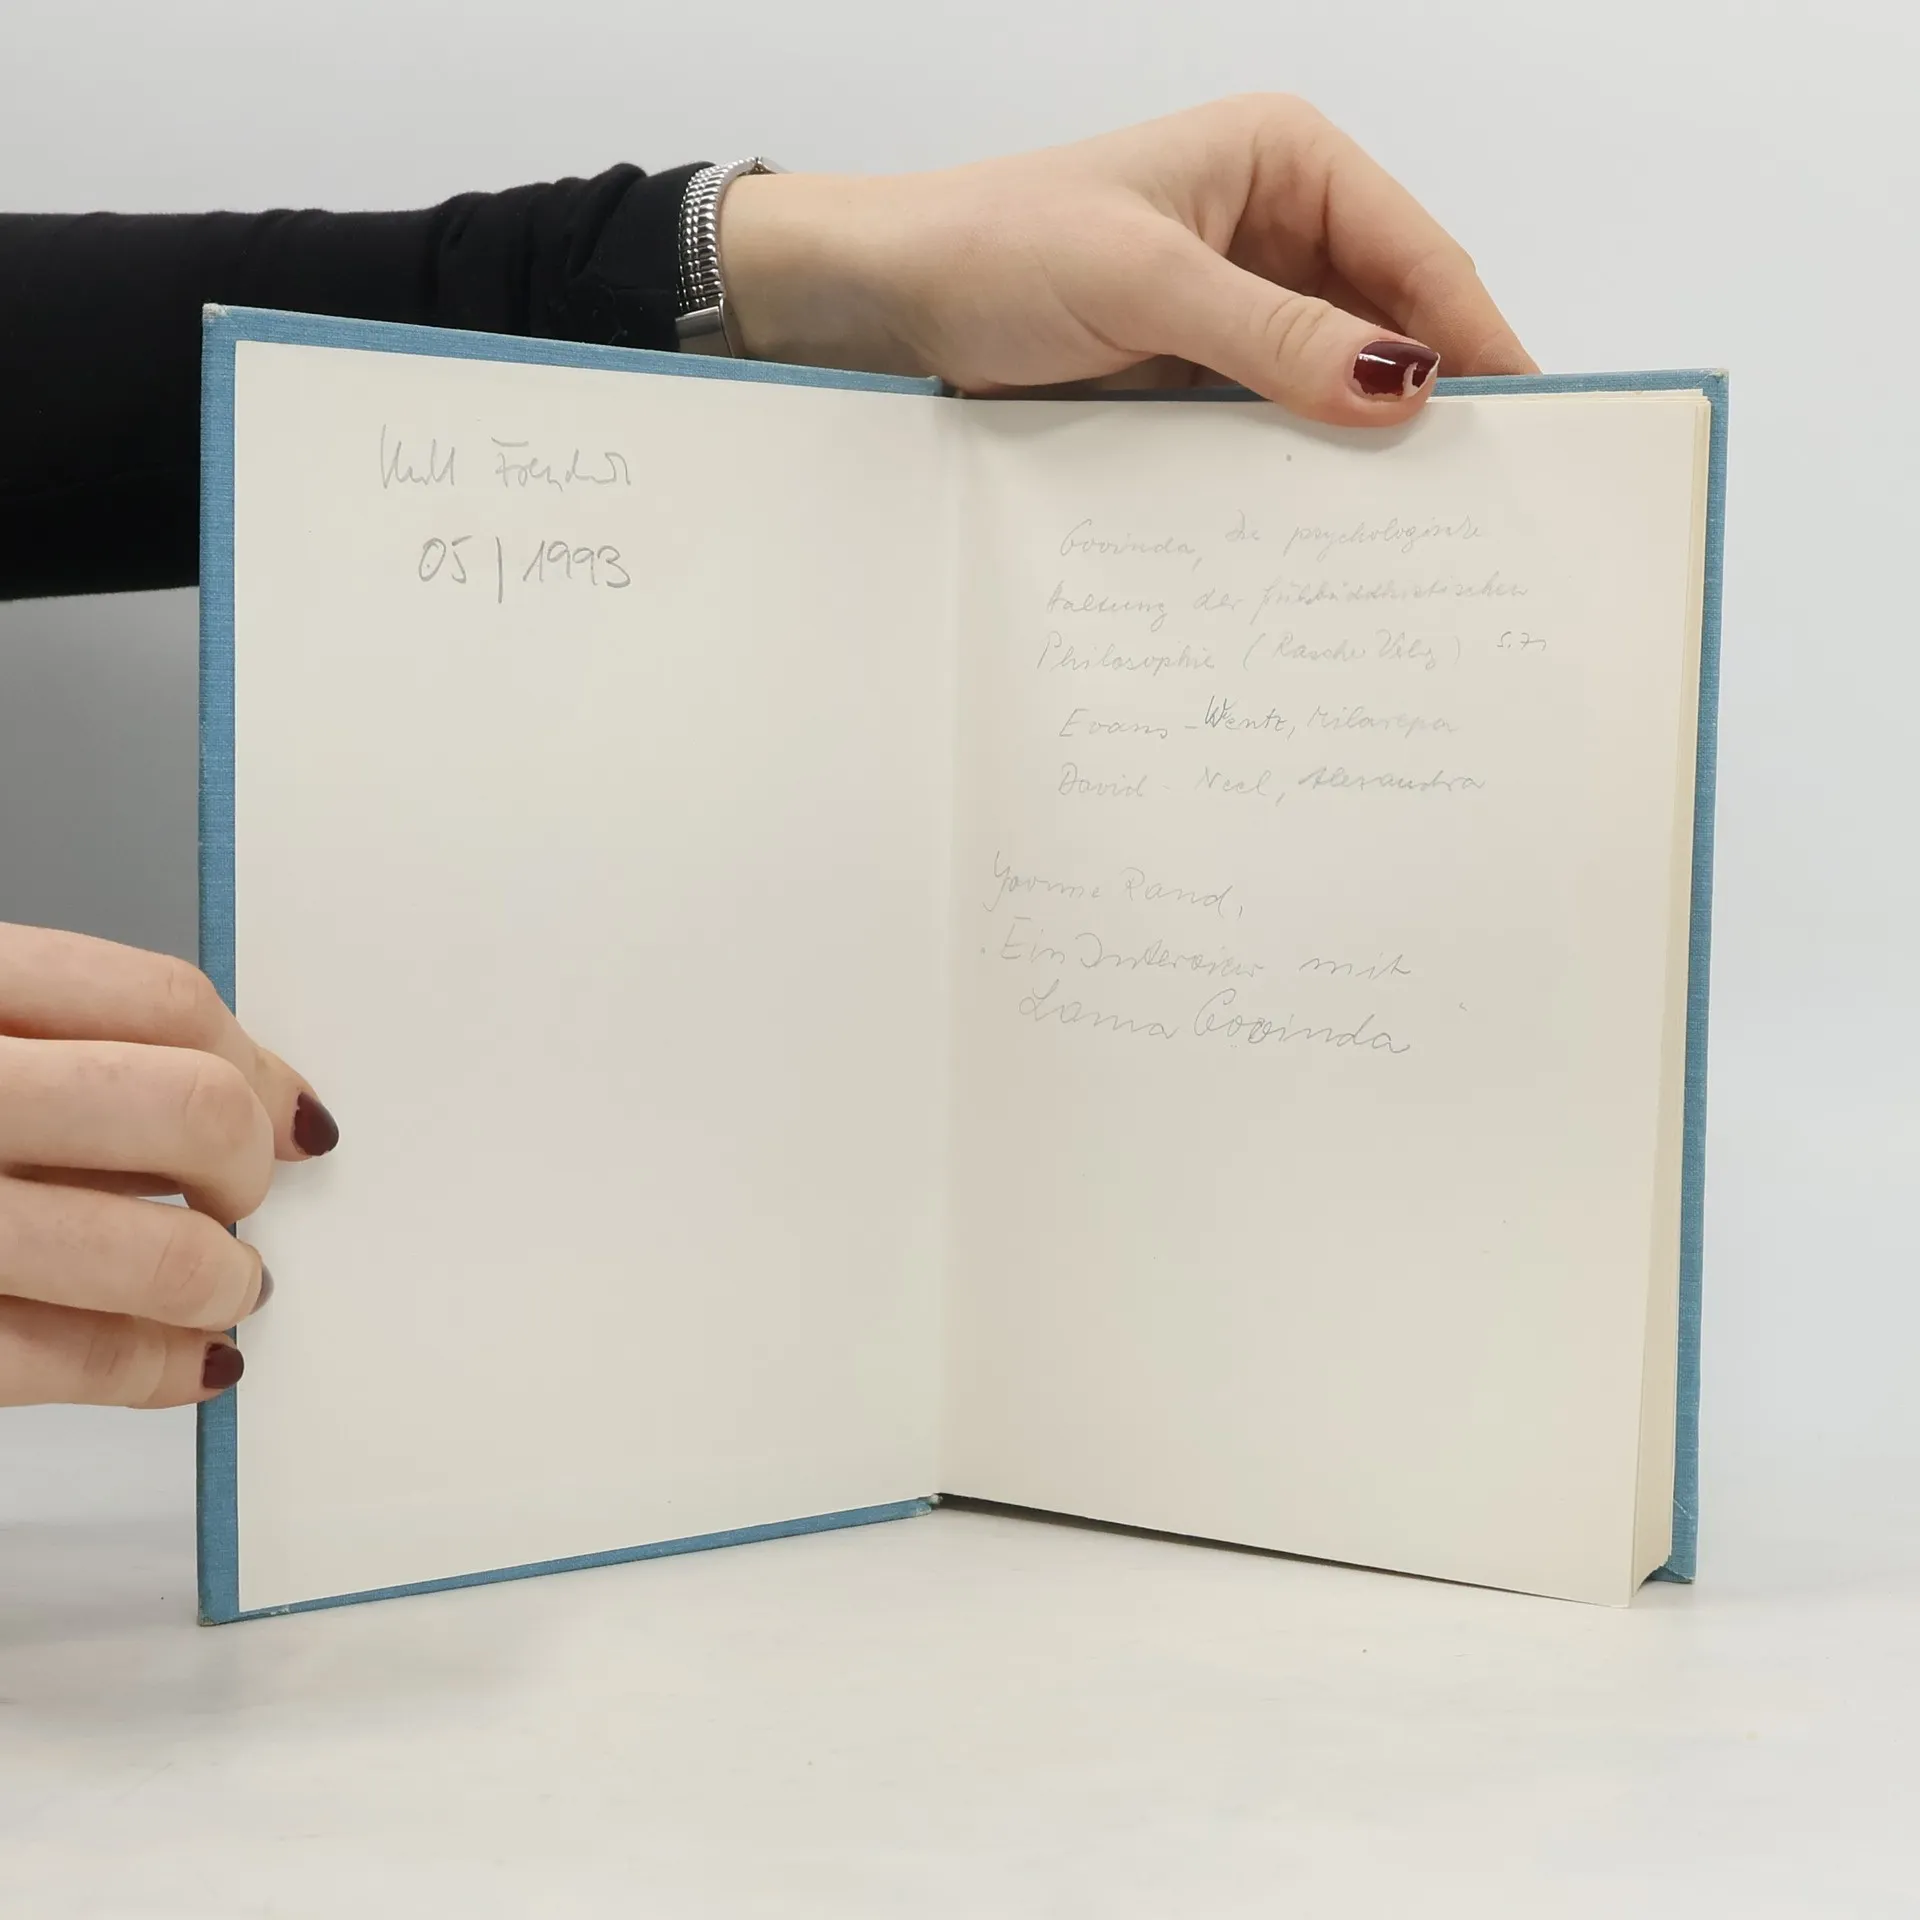 05/1993
Govinda, Die psychologische
Haltung der frühbuddhistischen
Philosophie (Rascher Verlg) S. 71
Evans-Wentz, Milarepa
David-Neel, Alexandra
Yvonne Rand,
Ein Interview mit
Lama Govinda